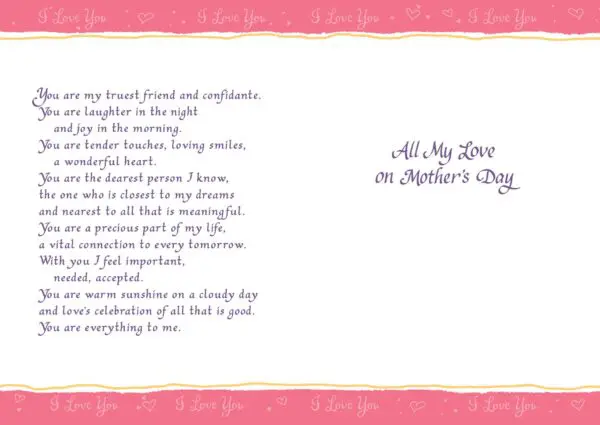 I Love You I Love You I Love You I Love You I Love You
You are my truest friend and confidante.
You are laughter in the night
and joy in the morning.
You are tender touches, loving smiles,
a wonderful heart.
You are the dearest person I know,
the one who is closest to my dreams
and nearest to all that is meaningful.
You are a precious part of my life,
a vital connection to every tomorrow.
With you I feel important,
needed, accepted.
You are warm sunshine on a cloudy day
and love's celebration of all that is good.
You are everything to me.
All My Love
on Mother's Day
I Love You I Love You I Love You I Love You